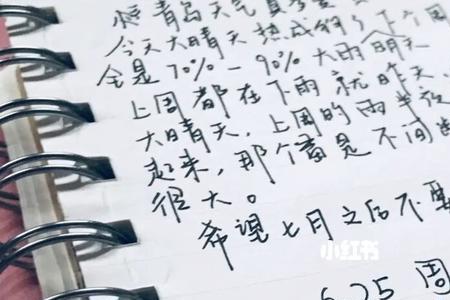 青岛天气真
今天大晴天热成狗了下个周
全是70%-90%大雨明天
上周都在下雨就昨天、
大晴天,上周的雨半夜
起来,那个雷是不间断
很大。
希望七月之后不要
小红书
6.25 周